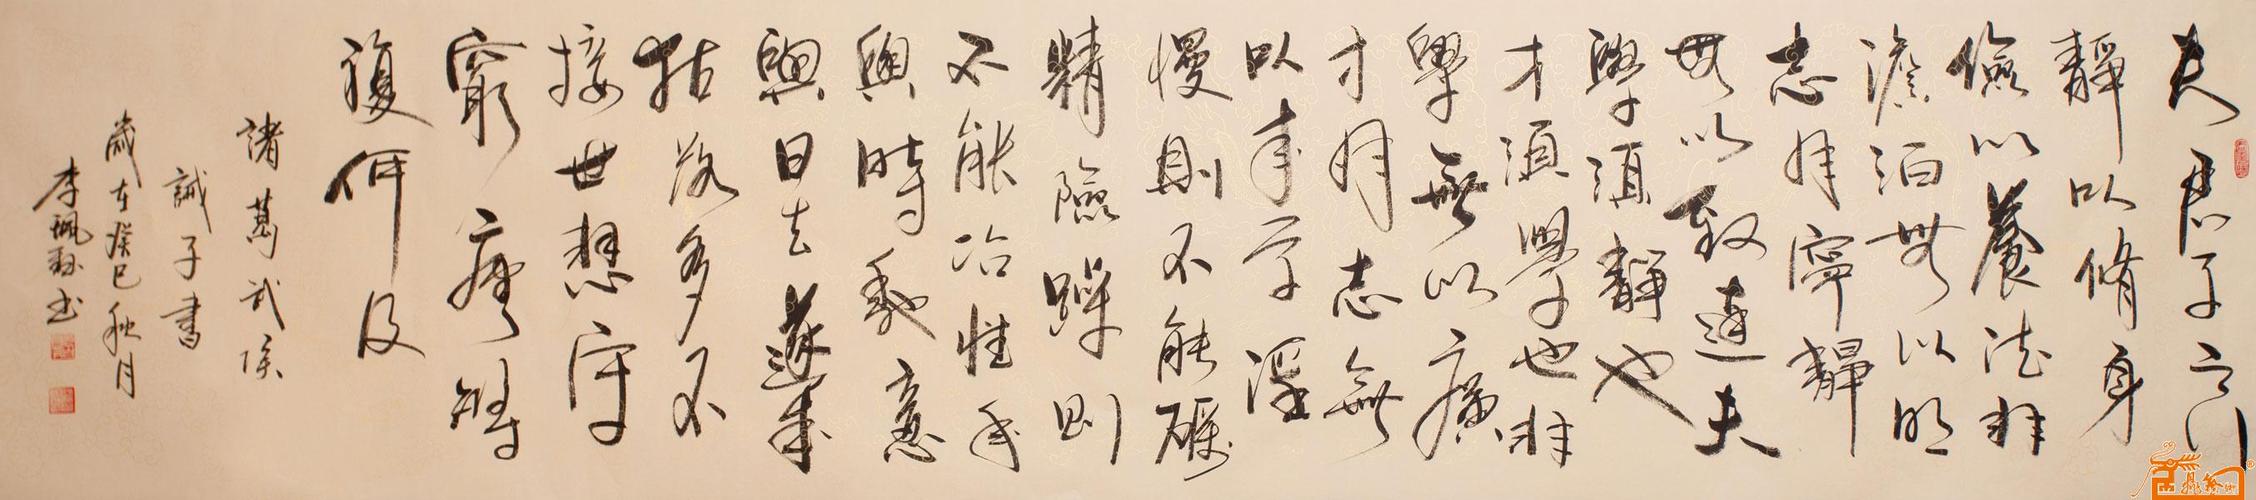 夫君子之行
靜以脩身
儉以養德非
澹泊無以明
志非寧靜
無以致遠夫
學須靜也
才須學也非
學無以廣
才非志無
以成學淫
慢則不能礪
精險躁則
不能冶性年
與時馳意
與日去遂成
枯落多不
接世悲守
窮廬將
復何及
諸葛武侯
誡子書
歲在癸巳秋月
李珮书